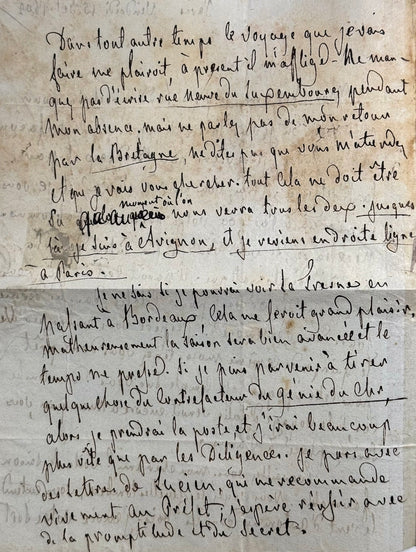 Dans tout autre temps le voyage que je vais
faire me plairoit à present il m'afflige - Ne man-
que pas d'écrire rue neuve du Luxembourg pendant
mon absence, mais ne parlez pas de mon retour
par la Bretagne, ne dites pas que vous m'attendez
et que je vais vous chercher. tout cela ne doit être
su qu'au moment où l'on nous verra tous les deux. jusques
là je suis à Avignon, et je reviens en droite ligne
à Paris.
Je ne sais si je pourrai voir La en
passant à Bordeaux. Cela me feroit grand plaisir.
malheureusement la saison sera bien avancée et le
temps me presse. Si je puis parvenir à tirer
quelque chose du contrefacteur du génie du Chr,
alors je prendrai la poste et j'irai beaucoup
plus vite que par les Diligences. je pars avec
des lettres de Lucien, qui me recommande
vivement au Préfet, j'espère réussir avec
de la promptitude et du secret.